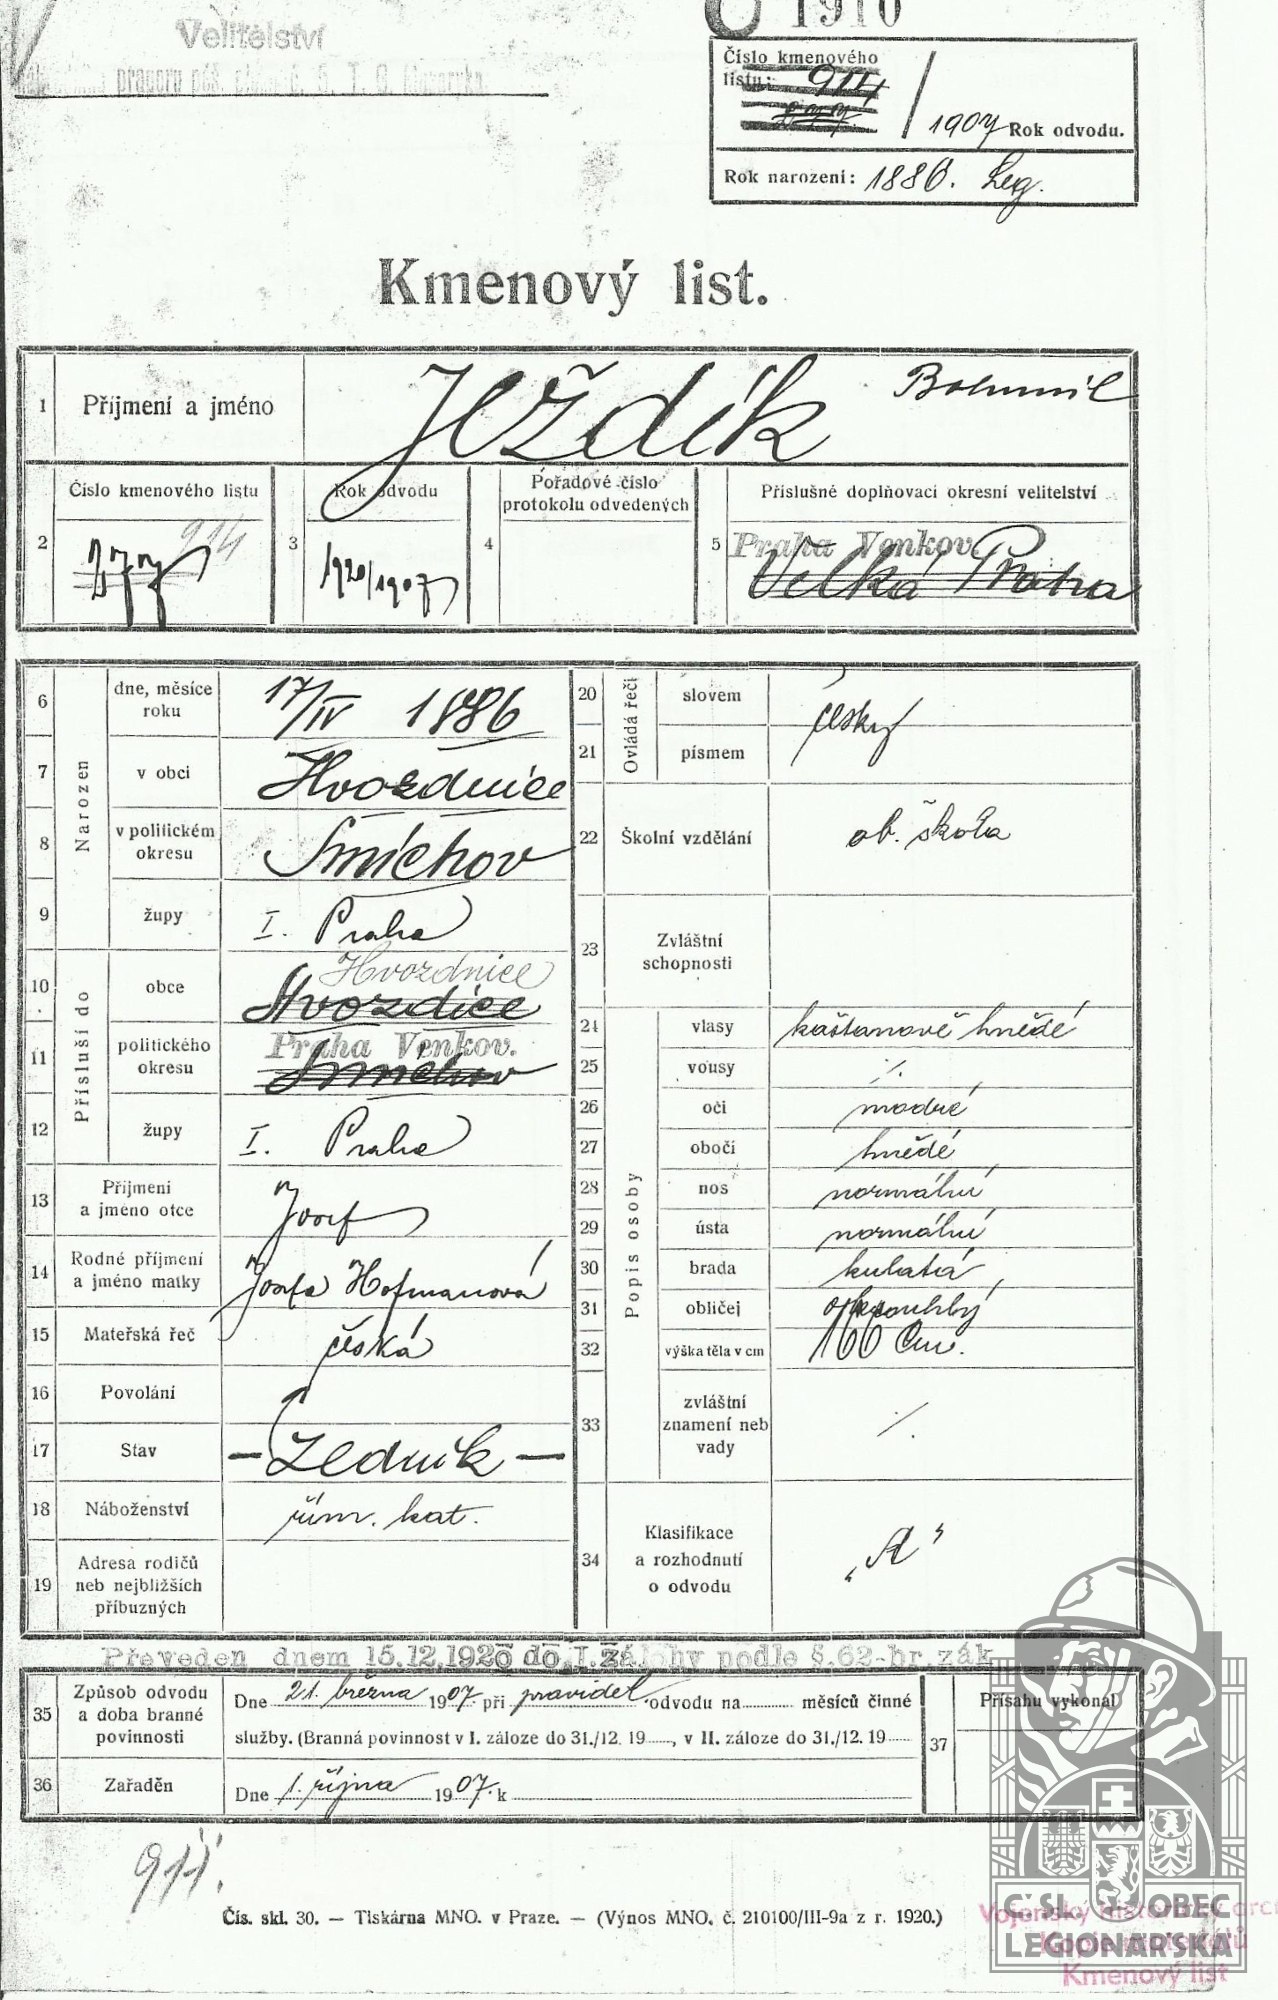 Velitelství
praporu pěš. pluku č. 5. T. G. Masaryka.
1910
Číslo kmenového
listu: 914
277
/ 1907 Rok odvodu.
Rok narození: 1886. Leg.
Kmenový list.
1 Příjmení a jméno Ježdík Bohumil
2 Číslo kmenového listu 914 277
3 Rok odvodu 1920/1907
4 Pořadové číslo protokolu odvedených
5 Příslušné doplňovací okresní velitelství
Praha Venkov.
Velká Praha
Narozen
6 dne, měsíce roku 17/IV 1886
7 v obci Hvozdnice
8 v politickém okresu Smíchov
9 župy I. Praha
Přísluší do
10 obce Hvozdnice
Hvozdice
11 politického okresu Praha Venkov.
Smíchov
12 župy I. Praha
13 Příjmení a jméno otce Josef
14 Rodné příjmení a jméno matky Josefa Hofmanová
15 Mateřská řeč česká
16 Povolání
17 Stav — Zedník —
18 Náboženství řím. kat.
19 Adresa rodičů neb nejbližších příbuzných
Ovládá řeči
20 slovem česky
21 písmem
22 Školní vzdělání ob. škola
23 Zvláštní schopnosti
Popis osoby
24 vlasy kaštanově hnědé
25 vousy ·/.
26 oči modré
27 obočí hnědé
28 nos normální
29 ústa normální
30 brada kulatá
31 obličej okrouhlý
32 výška těla v cm 160 cm.
33 zvláštní znamení neb vady ·/.
34 Klasifikace a rozhodnutí o odvodu „A"
Převeden dnem 15.12.1920 do I. zálohy podle §.62-br.zák
35 Způsob odvodu a doba branné povinnosti
Dne 21. března 1907. při pravidel. odvodu na měsíců činné
služby. (Branná povinnost v I. záloze do 31./12. 19 , v II. záloze do 31./12. 19
36 Zařaděn Dne 1. října 1907. k
37 Přísahu vykonal
914.
Čís. skl. 30. — Tiskárna MNO. v Praze. — (Výnos MNO. č. 210100/III-9a z r. 1920.)
ČSL. OBEC
LEGIONÁŘSKÁ
Vojenský historický arch
Kopie materiálů
Kmenový list